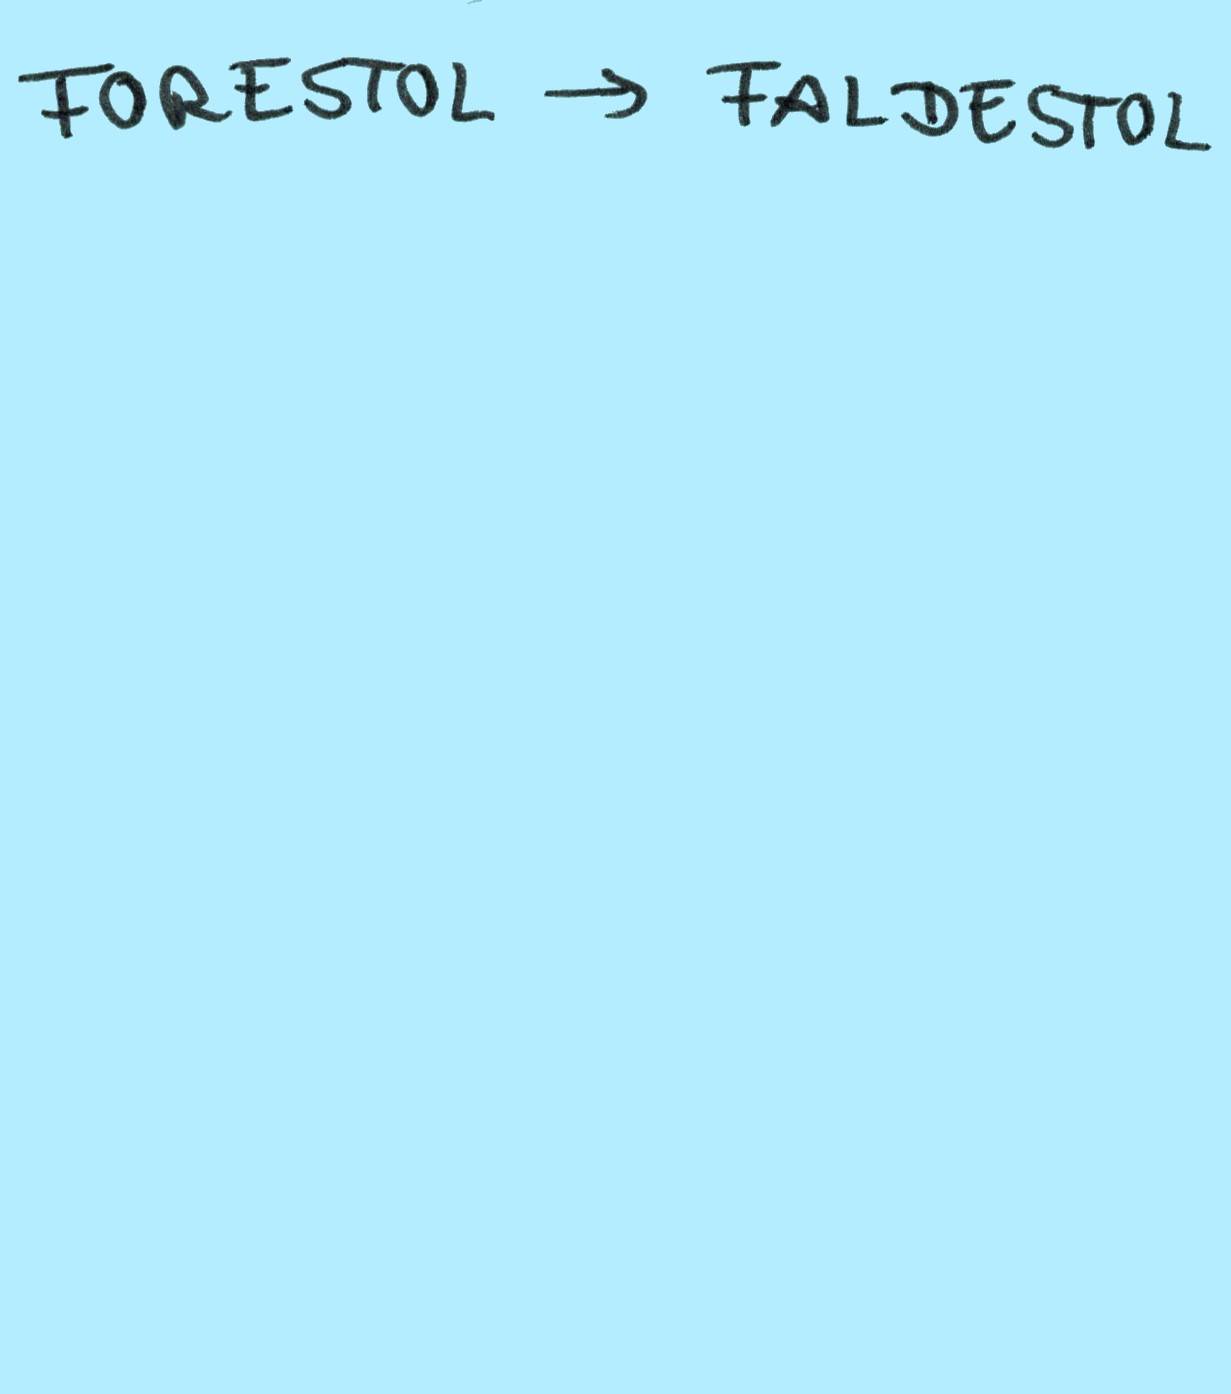 FORESTOL → FALDESTOL